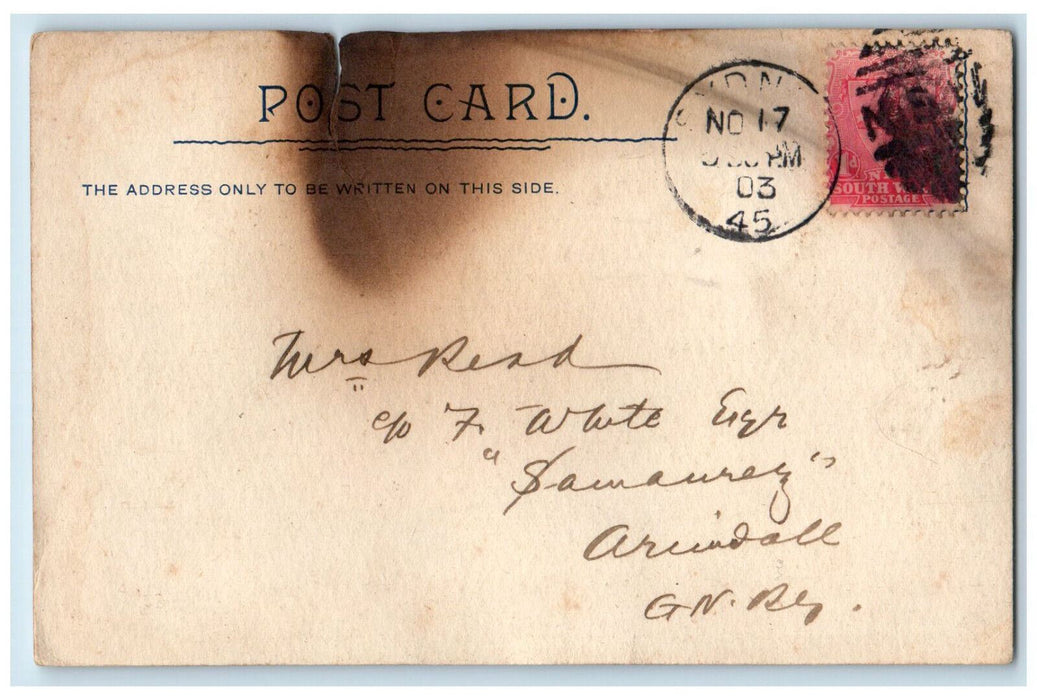 POST CARD.
THE ADDRESS ONLY TO BE WRITTEN ON THIS SIDE.
NO 17
PM
03
45
1d
SOUTH
POSTAGE
Mrs Read
c/o F. White Esqr
Arundall
G N. Rly.